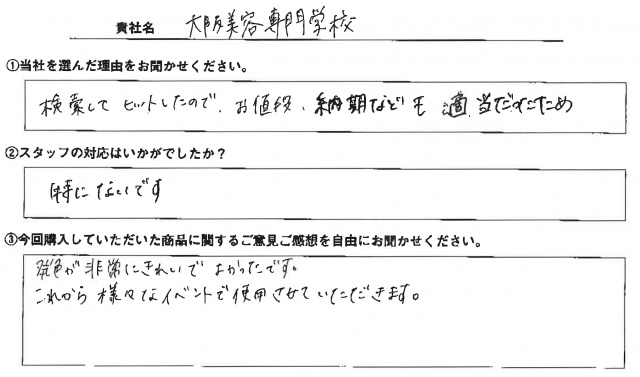 貴社名 大阪美容専門学校
①当社を選んだ理由をお聞かせください。
検索して ヒットしたので、お値段、納期なども 適当だったため
②スタッフの対応はいかがでしたか？
特にないです
③今回購入していただいた商品に関するご意見ご感想を自由にお聞かせください。
発色が非常にきれいで よかったです。
これから様々なイベントで使用させていただきます。